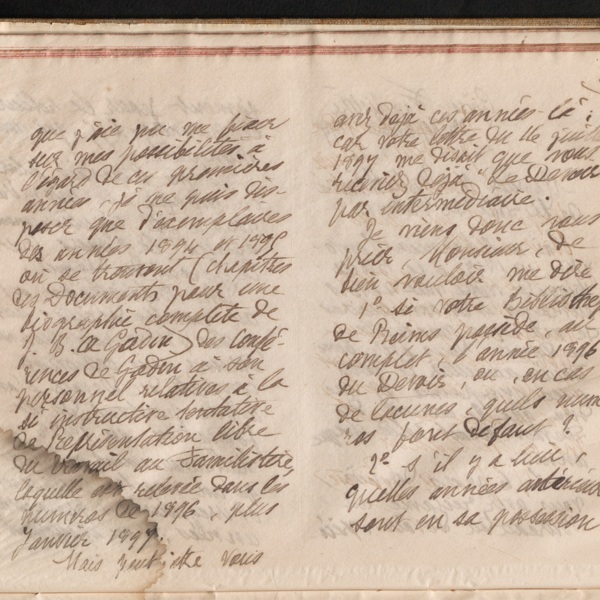 que j'aie pu me fixer
sur mes possibilités à
l'égard de ces premières
années, je ne puis dis-
poser que d'exemplaires
des années 1894 et 1895
où se trouvent (chapitres
des Documents pour une
biographie complète de
J. B. A. Godin) des confé-
rences de Godin à son
personnel relatives à la
si instructive tentative
de représentation libre
du travail au Familistère,
laquelle est relevée dans les
numéros de 1896, plus
Janvier 1897.
Mais peut-être vous
avez déjà ces années-là ;
car votre lettre du 16 juil
1897 me disait que vous
receviez déjà "Le Devoir
par intermédiaire.
Je viens donc vous
prier, Monsieur, de
bien vouloir me dire
1° si votre Biblioth
de Reims possède, au
complet, l'année 1896
du Devoir, ou, en cas
de lacunes, quels num
ros font défaut ?
2° s'il y a lieu,
quelles années antérieur
sont en sa possession